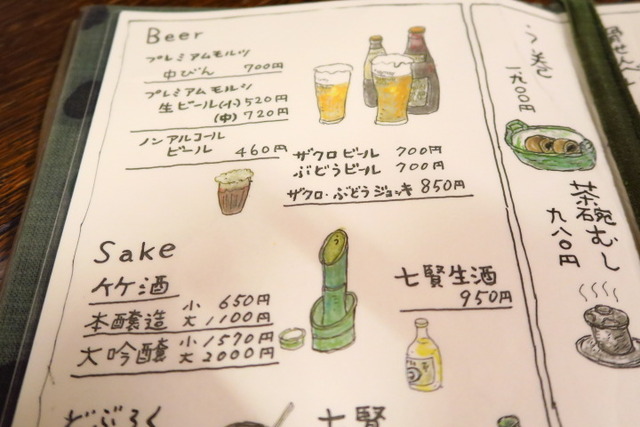 Beer
プレミアムモルツ
中びん 700円
プレミアムモルツ
生ビール(小)520円
(中)720円
ノンアルコール
ビール 460円
ザクロビール 700円
ぶどうビール 700円
ザクロ・ぶどうジョッキ 850円
Sake
竹酒
本醸造 小 650円
大 1100円
大吟醸 小 1570円
大 2000円
七賢生酒
950円
どぶろく
七賢
う巻
一九〇〇円
茶碗むし
九八〇円